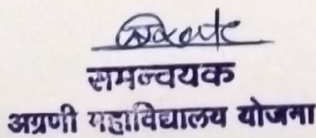 समन्वयक
अग्रणी महाविद्यालय योजना